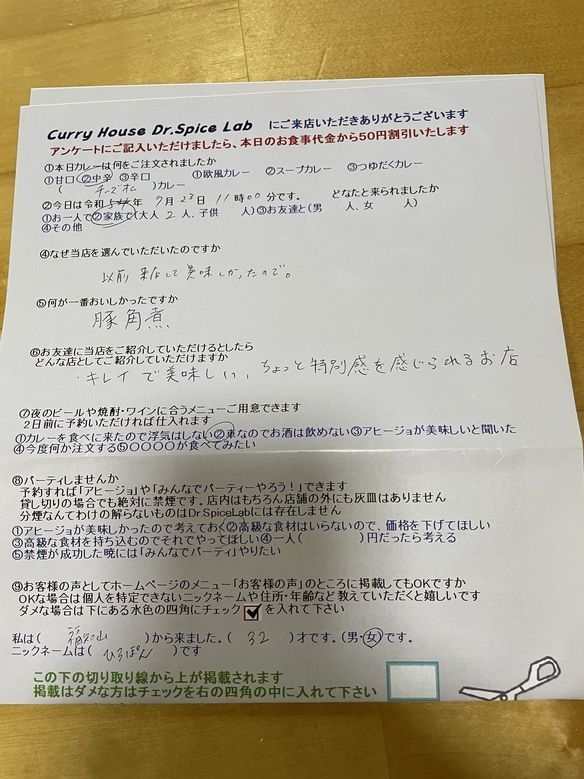 Curry House Dr.Spice Lab にご来店いただきありがとうございます
アンケートにご記入いただけましたら、本日のお食事代金から50円割引いたします
①本日カレーは何をご注文されましたか
①甘口②中辛③辛口 ①欧風カレー ②スープカレー ③つゆだくカレー
( チーズオム )カレー
②今日は令和 年 9月23日 11時00分です。 どなたと来られましたか
①お一人で②家族で(大人 2人、子供 人)③お友達と(男 人、女 人)
④その他
④なぜ当店を選んでいただいたのですか
以前来店して美味しかったので。
⑤何が一番おいしかったですか
豚角煮
⑥お友達に当店をご紹介していただけるとしたら
どんな店としてご紹介していただけますか
・キレイで美味しい、ちょっと特別感を感じられるお店
⑦夜のビールや焼酎・ワインに合うメニューご用意できます
2日前に予約いただければ仕入れます
①カレーを食べに来たので浮気はしない②車なのでお酒は飲めない③アヒージョが美味しいと聞いた
④今度何か注文する⑤〇〇〇〇が食べてみたい
⑧パーティしませんか
予約すれば「アヒージョ」や「みんなでパーティーやろう!」できます
貸し切りの場合でも絶対に禁煙です。店内はもちろん店舗の外にも灰皿はありません
分煙なんてわけの解らないものはDr.SpiceLabには存在しません
①アヒージョが美味しかったので考えておく②高級な食材はいらないので、価格を下げてほしい
③高級な食材を持ち込むのでそれでやってほしい④一人( )円だったら考える
⑤禁煙が成功した暁には「みんなでパーティ」やりたい
⑨お客様の声としてホームページのメニュー「お客様の声」のところに掲載してもOKですか
OKな場合は個人を特定できないニックネームや住所・年齢など教えていただくと嬉しいです
ダメな場合は下にある水色の四角にチェック を入れて下さい
私は( 福知山 )から来ました。( 32 )才です。(男・女)です。
ニックネームは( ひろぽん )です
この下の切り取り線から上が掲載されます
掲載はダメな方はチェックを右の四角の中に入れて下さい